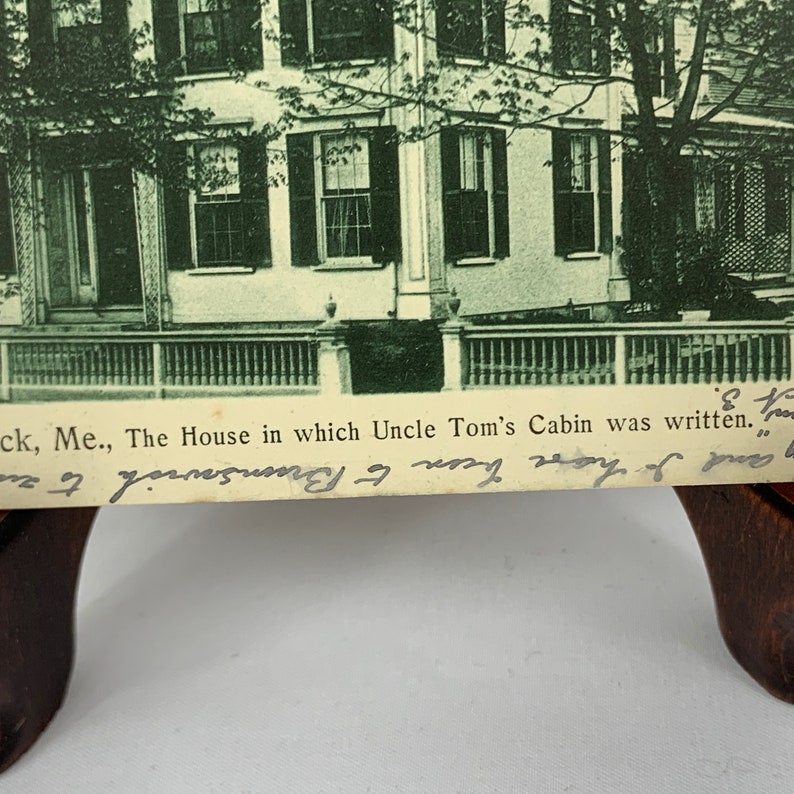 ck, Me., The House in which Uncle Tom's Cabin was written."
3.
and I have been to Brunswick to